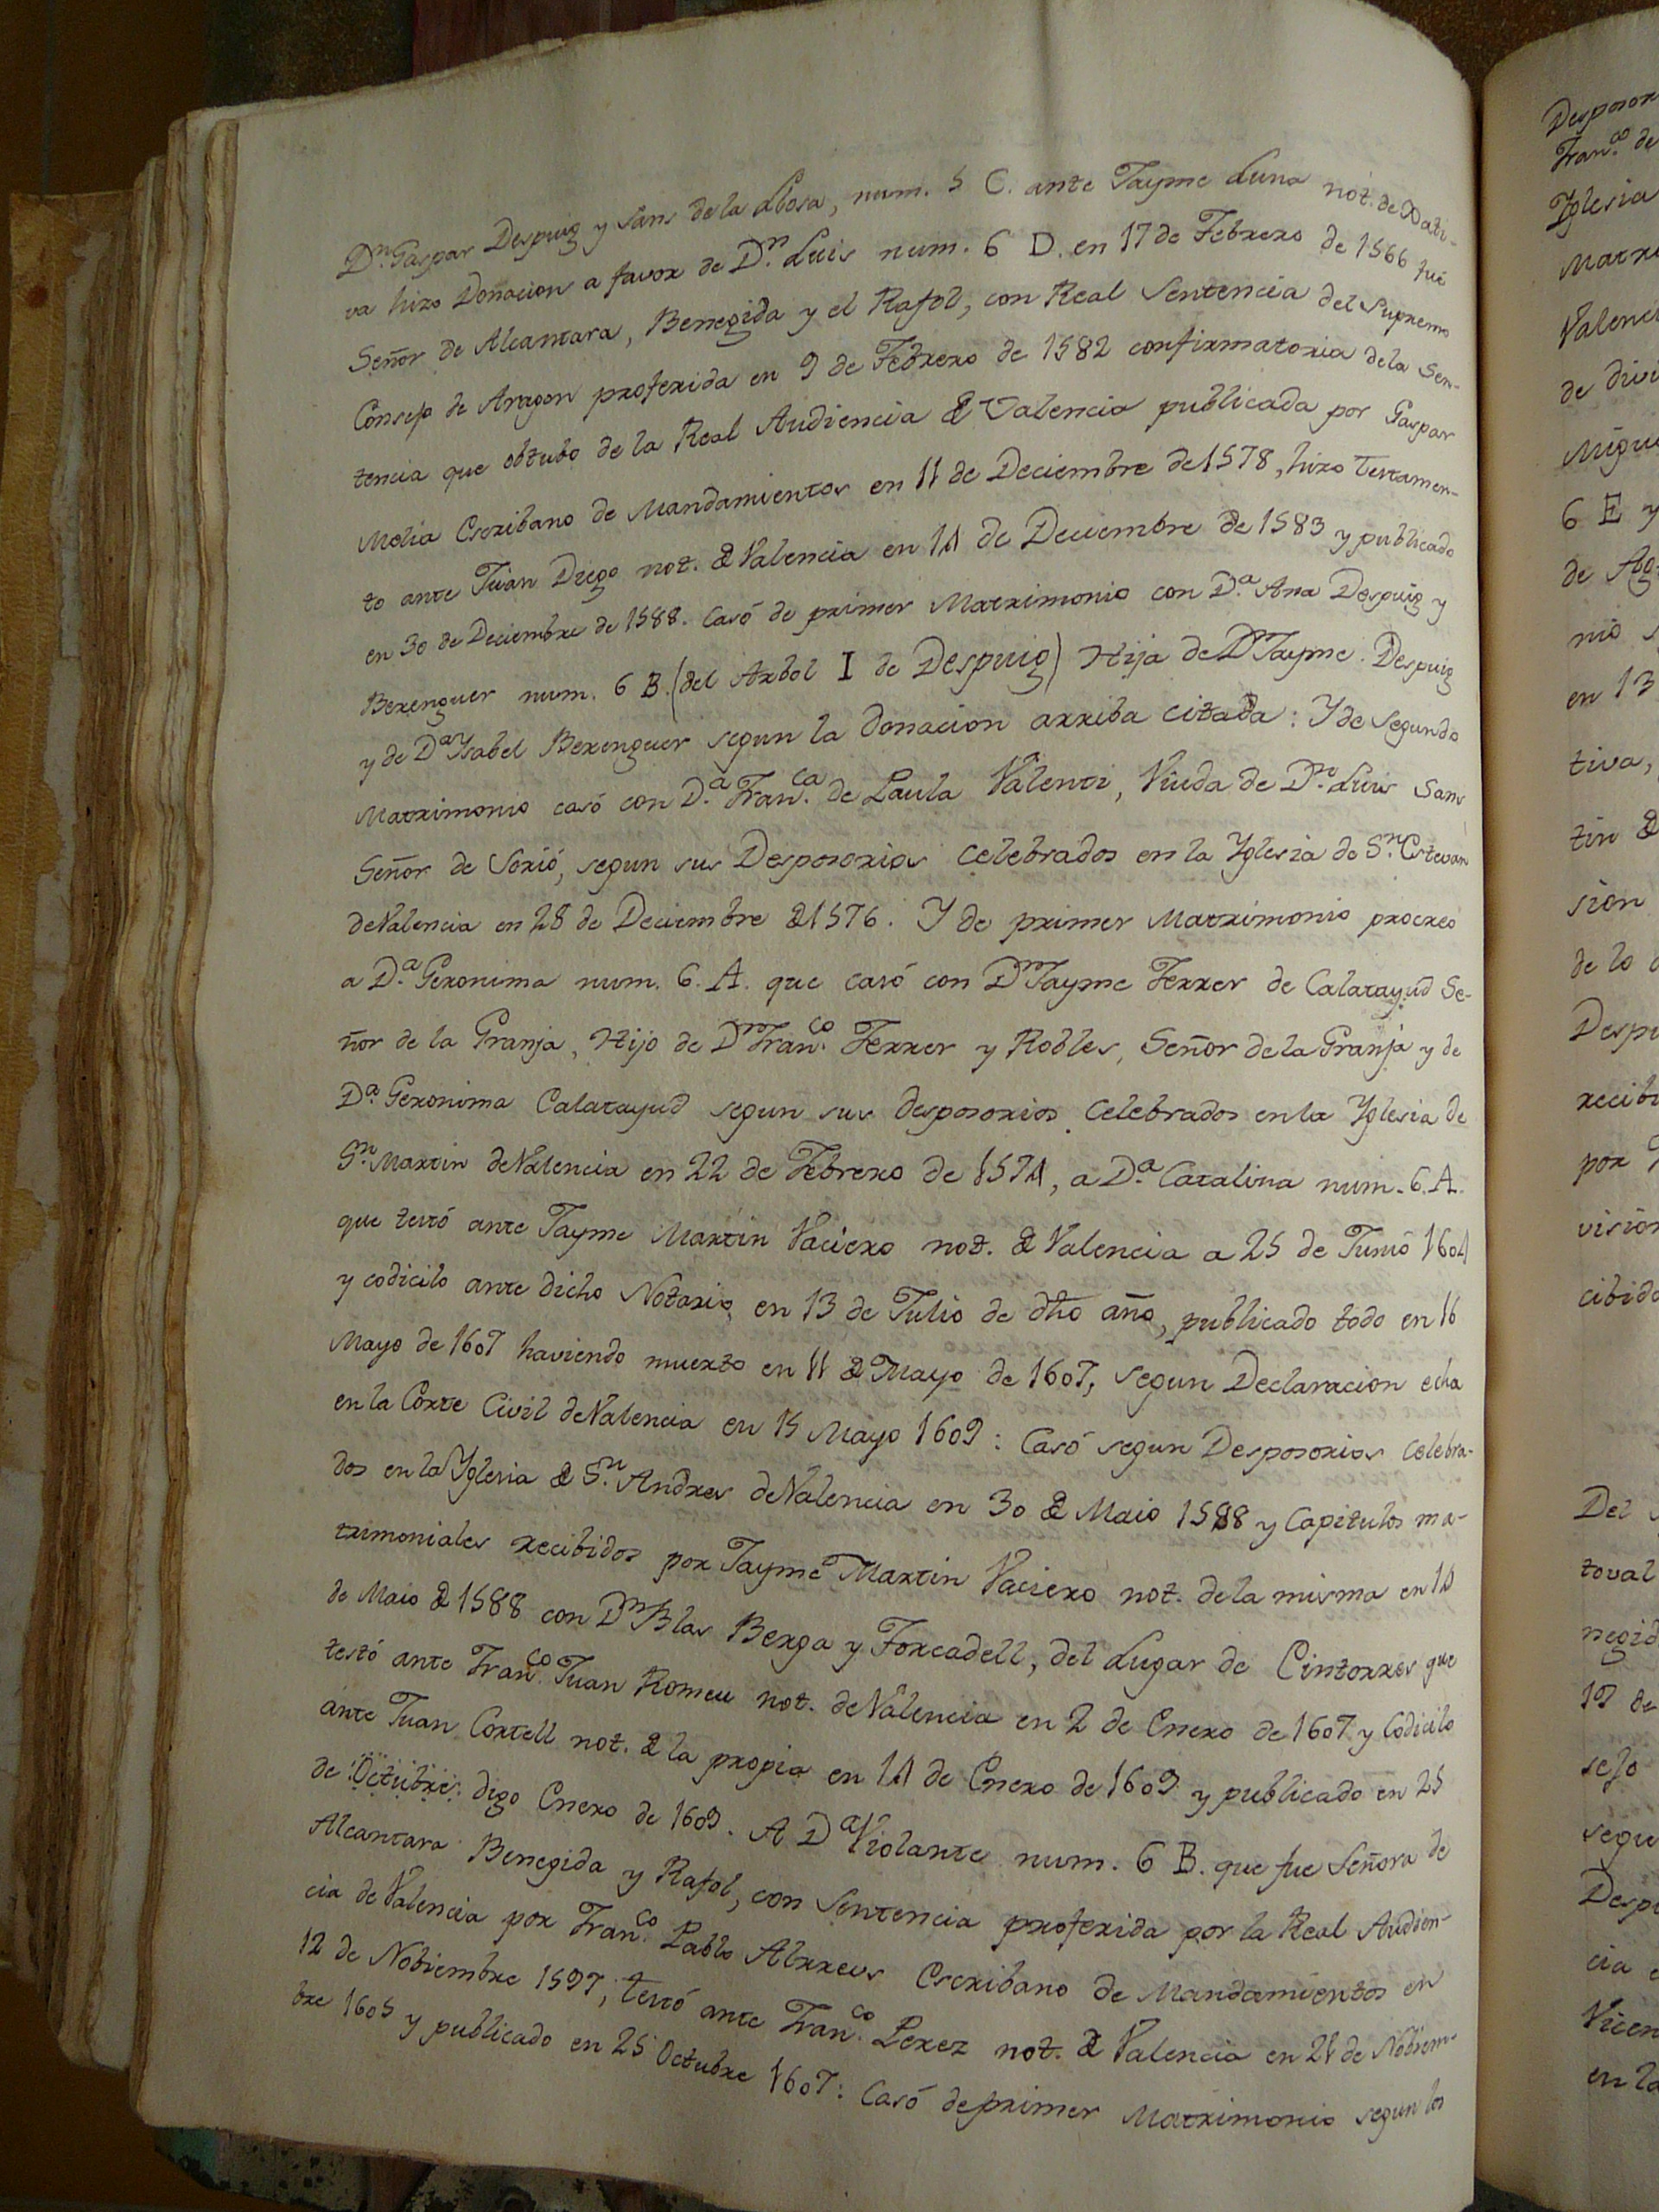 Dn. Gaspar Despuig y Sans de la Llosa, num. 5 C. ante Jayme Luna not. de Xati-
va hizo Donacion a favor de Dn. Luis num. 6 D. en 17 de Febrero de 1566 fué
Señor de Alcantara, Benegida y el Rafol, con Real Sentencia del Supremo
Consejo de Aragon proferida en 9 de Febrero de 1582 confirmatoria de la Sen-
tencia que obtubo de la Real Audiencia de Valencia publicada por Gaspar
Molia Escribano de Mandamientos en 11 de Deciembre de 1578, hizo Testamen-
to ante Juan Diego not. de Valencia en 14 de Deciembre de 1583 y publicado
en 30 de Deciembre de 1588. Casó de primer Matrimonio con Da. Ana Despuig y
Berenguer num. 6 B. (del Arbol I de Despuig) Hija de Dn. Jayme Despuig
y de Da. Ysabel Berenguer segun la donacion arriba citada: Y de segundo
Matrimonio casó con Da. Franca. de Paula Valenti, Viuda de Dn. Luis Sans
Señor de Sorió, segun sus Desposorios celebrados en la Yglesia de Sn. Estevan
de Valencia en 28 de Deciembre de 1576. Y de primer Matrimonio procreó
a Da. Geronima num. 6. A. que casó con Dn. Jayme Ferrer de Calatayud Se-
ñor de la Granja, Hijo de Dn. Franco. Ferrer y Robles, Señor de la Granja y de
Da. Geronima Calatayud segun sus desposorios celebrados en la Yglesia de
Sn. Martin de Valencia en 22 de Febrero de 1574, a Da. Catalina num. 6. A.
que testó ante Jayme Martin Vaciero not. de Valencia a 25 de Junio 1604
y codicilo ante dicho Notario, en 13 de Julio de dho año, publicado todo en 16
Mayo de 1607 haviendo muerto en 11 de Mayo de 1607, segun Declaracion echa
en la Corte Civil de Valencia en 15 Mayo 1609: Casó segun Desposorios celebra-
dos en la Yglesia de Sn. Andres de Valencia en 30 de Maio 1588 y Capitulos ma-
trimoniales recibidos por Jayme Martin Vaciero not. de la misma en 14
de Maio de 1588 con Dn. Blas Berga y Forcadell, del Lugar de Cintorres que
testó ante Franco. Juan Romeu not. de Valencia en 2 de Enero de 1607 y Codicilo
ante Juan Cortell not. de la propia en 14 de Enero de 1609 y publicado en 25
de Octubre: digo Enero de 1609. A Da. Violante num. 6 B. que fue Señora de
Alcantara Benegida y Rafol, con Sentencia proferida por la Real Audien-
cia de Valencia por Franco. Pablo Alrreus Escribano de Mandamientos en
12 de Nobiembre 1597, testó ante Franco. Perez not. de Valencia en 21 de Nobiem-
bre 1605 y publicado en 25 Octubre 1607: Casó de primer Matrimonio segun los
Desposor
Franco. de
Yglesia
Matri
Valenci
de divi
Migue
6 E y
de Ag
nio s
en 13
tiva,
tin de
sion
de lo
Despu
recibi
por
vision
cibido
Del
toval
negid
17 de
sejo
segu
Despu
cia
Vicen
en la